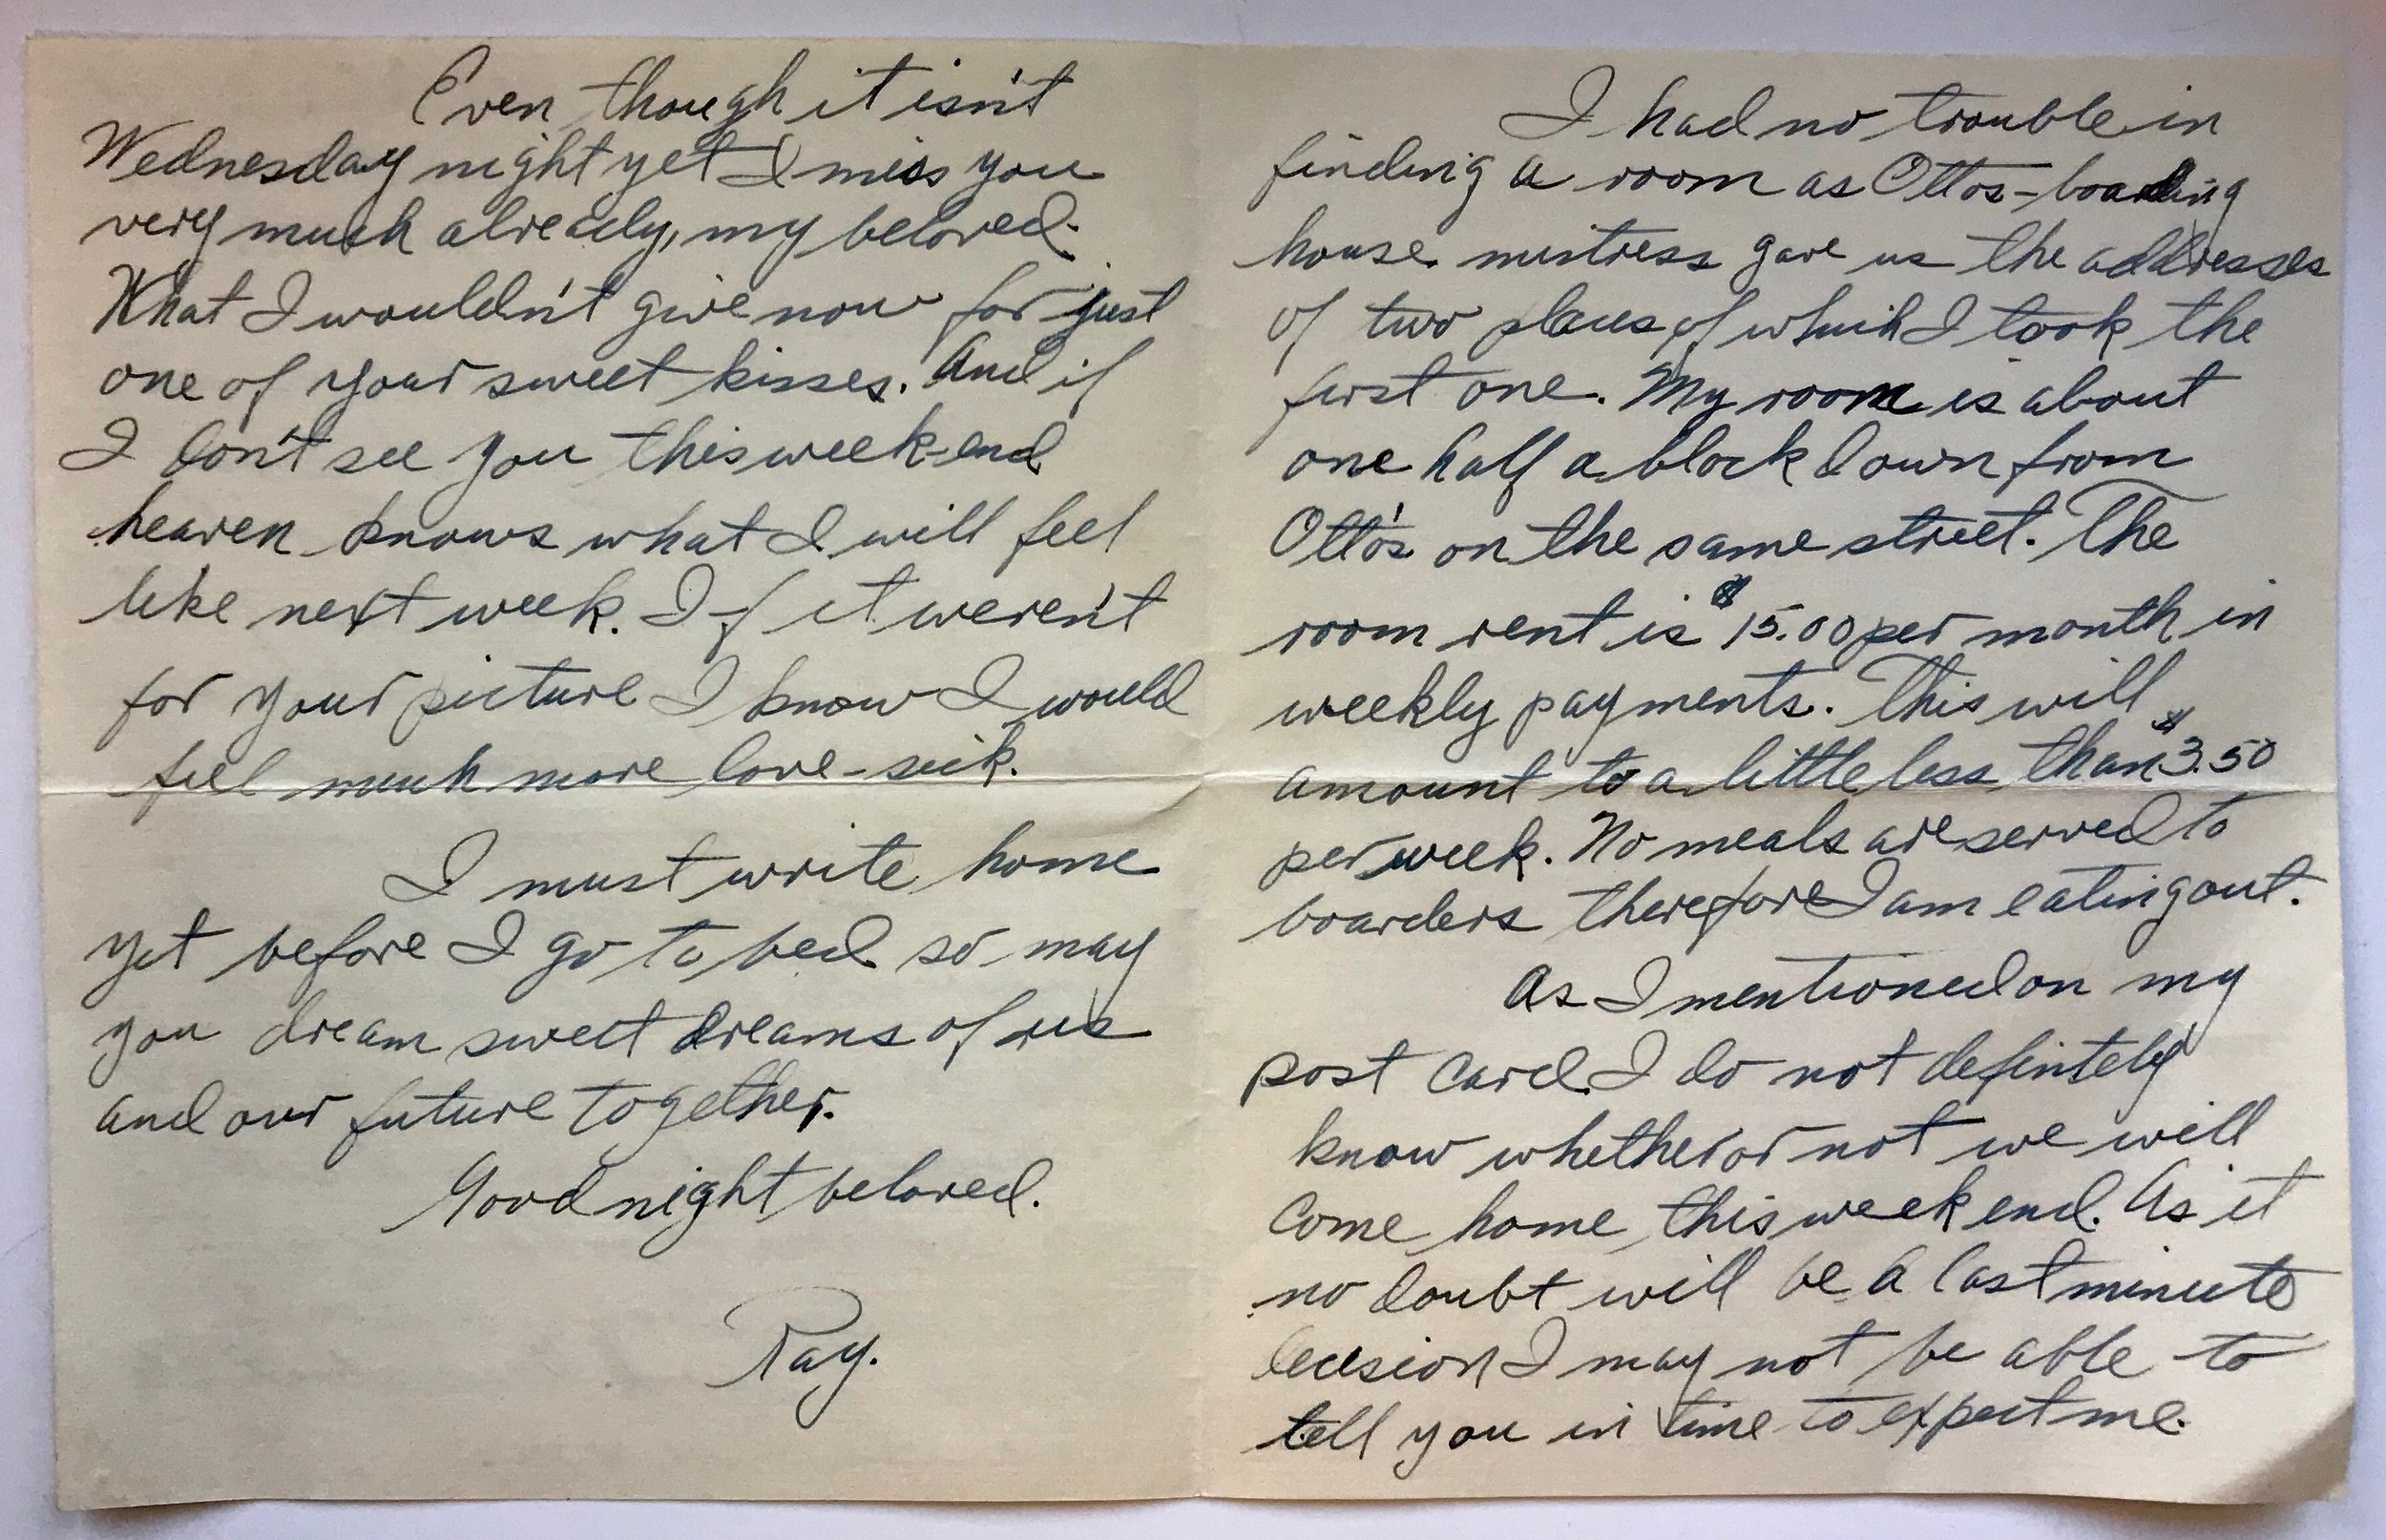 Even though it isn't
Wednesday night yet I miss you
very much already, my beloved.
What I wouldn't give now for just
one of your sweet kisses. And if
I don't see you this week-end
heaven knows what I will feel
like next week. If it weren't
for your picture I know I would
feel much more love-sick.
I must write home
yet before I go to bed so may
you dream sweet dreams of us
and our future together.
Good night beloved.
Ray.
I had no trouble in
finding a room as Ottos-boarding
house mistress gave us the addresses
of two places of which I took the
first one. My room is about
one half a block down from
Otto's on the same street. The
room rent is $15.00 per month in
weekly payments. This will
amount to a little less than $3.50
per week. No meals are served to
boarders therefore I am eating out.
As I mentioned on my
post card I do not defintely
know whether or not we will
come home this week end. As it
no doubt will be a last minute
decision I may not be able to
tell you in time to expect me.